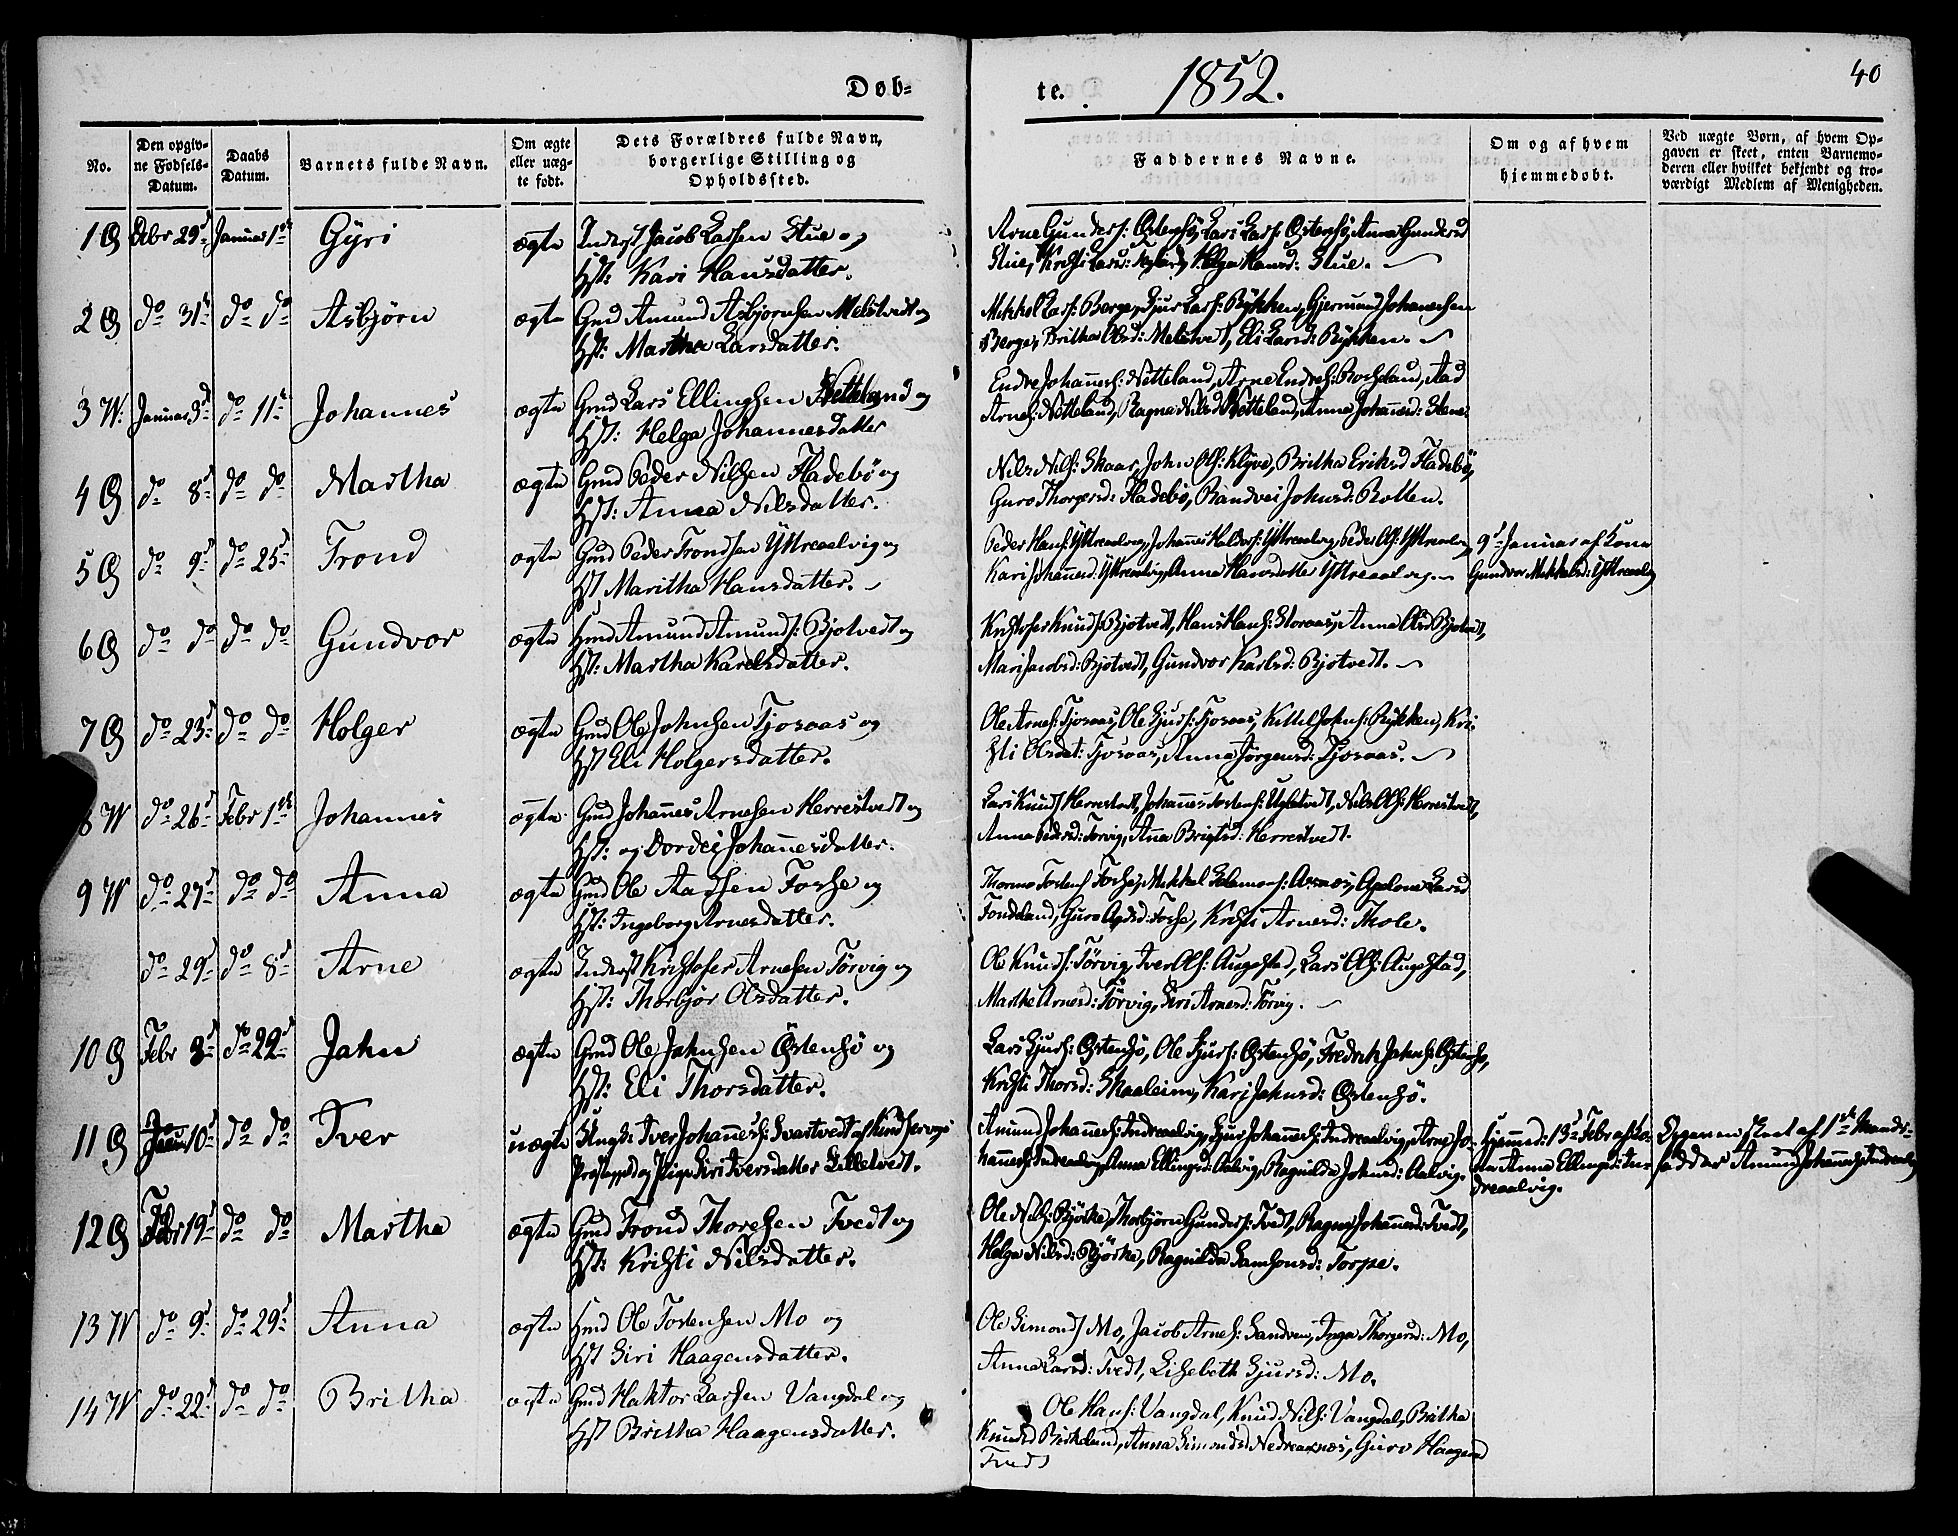 Døb-
te.
1852.
40
No.
Den opgiv-
ne Fødsels-
Datum.
Daabs
Datum.
Barnets fulde Navn.
Om ægte
eller uæg-
te født.
Dets Forældres fulde Navn,
borgerlige Stilling og
Opholdssted.
Faddernes Navne.
Om og af hvem
hjemmedøbt.
Ved uægte Børn, af hvem Op-
gaven er skeet, enten Barnemo-
deren eller hvilket bekjendt og tro-
værdigt Medlem af Menigheden.
1 Debr 29 Januar 1 Gyri ægte Inderst Jacob Larsen Stue og
Hst: Kari Hansdatter.
Arne Gunders: Østensø, Lars Lars: Østensø, Anna Gundersd
Stue, Helga Hansd: Stue.
2 do 31 do do Asbjørn ægte Gmd Amund Asbjørnsen Melstvedt og
Hst: Martha Larsdatter.
Mikkel Lars: Berge, Sjur Lars: Rykken, Gjermund Johannesen
Berge, Britha Olsd: Melstvedt, Eli Larsd: Rykken.
3 W: Januar 3 do 11 Johannes ægte Gmd Lars Ellingsen Netteland og
Hst: Helga Johannesdatter
Endre Johannes: Netteland, Arne Endres: Aad
Arnes: Netteland, Ragna Nilsd Netteland, Anna Johannesd: Stene
4 do 8 do do Martha ægte Gmd Peder Nilsen Fladebø og
Hst: Anna Nilsdatter.
Nils Nils: Skaar, John Ols: Klyve, Britha Eriksd Fladebø,
Guro Thorgersd: Fladebø, Randvei Johnsd: Botten.
5 do 9 do 25 Trond ægte Gmd Peder Trondsen Yttreaalvig og
Hst Maritha Hansdatter.
Peder Hans: Yttreaalvig, Johannes Yttreaalvig, Peder Ols: Yttreaalvig,
Kari Johannesd: Yttreaalvig, Anna Hansdatter Yttreaalvig.
9 Januar af Kone
Gundvor Mikkelsd: Yttreaalvig
6 do do do do Gundvor ægte Hmd Amund Amunds: Bjotvedt og
Hst: Martha Karlsdatter.
Kristofer Knuds Bjotvedt, Hans Hans: Storaas, Anna Olsd Bjotvedt,
Mari Jacobsd: Bjotvedt, Gundvor Karlsd: Bjotvedt.
7 do 23 do do Holger ægte Gmd Ole Johnsen Tjoraas og
Hst Eli Holgersdatter.
Ole Arnes: Tjoraas, Ole Sjurs: Tjoraas, Kittel Johns: Rykken, Kri-
sti Olsdat: Tjoraas, Anna Jørgensd: Tjoraas.
8 W do 26 Febr 1 Johannes ægte Gmd Johannes Arnesen Herrestvedt og
Hst: og Dordei Johannesdatter.
Lars Knuds Herrestvedt, Johannes Nils Ols: Herrestvedt,
Anna Pedersd: Tørvig, Anna Brigtsd: Herrestvedt.
9 W do 27 do do Anna ægte Gmd Ole Aadsen Fosse og
Hst: Ingeborg Arnesdatter.
Thormo Tostens Fosse, Mikkel Aksnes, Apelone Larsd
Tondeland, Guro Aadsd: Fosse, Kristi Arnesd: Thole.
do 29 do 8 Arne ægte Inderst Kristofer Arnesen Tørvig og
Hst: Thorbjør Olsdatter.
Ole Knuds: Tørvig, Iver Ols: Augestad, Lars Ols: Augestad,
Marthe Arnesd: Tørvig, Siri Arnesd: Tørvig.
10 Febr 3 do 22 John ægte Gmd Ole Johnsen Østensø og
Hst: Eli Thorsdatter.
Lars Sjurs: Østensø, Ole Sjurs: Østensø, Fredrik Johns: Østensø,
Kristi Thorsd: Skaaleim, Kari Johnsd: Østensø.
11 10 do do Iver uægte Ungk: Iver Johannes: Svartvedt af Kinservigs
Præstegjeld og Pige Siri Iversdatter Lilletvedt.
Amund Johannes: Indreaalvig, Sjur Johannes: Indreaalvig, Arne Jo-
hannes: Indreaalvig, Anna Ellingsd: Aalvig, Ragnilda Johnsd: Aalvig.
Hjemmed: 13 Febr af Ko-
na Anna Ellingsd: In-
dreaalvig.
Opgaven skeet af 1ste Mands-
fadder Amund Johannes: Indreaalvig
12 Febr 19 do do Martha ægte Gmd Trond Thoresen Tvedt og
Hst: Kristi Nilsdatter.
Ole Nils: Bjørke, Thorbjørn Gunders: Tvedt, Johannesd: Tvedt,
Helga Nilsd: Bjørke, Ragnilda Samsonsd: Torpe.
13 W do 9 do 29 Anna ægte Hmd Ole Tostensen Mo og
Hst Siri Haagensdatter.
Ole Simonds Mo, Jacob Arnes: Sandven, Inga Thorgersd: Mo,
Anna Larsd: Tvedt, Lisebeth Sjursd: Mo.
14 W do 22 do do Britha ægte Gmd Haktor Larsen Vangdal og
Hst Britha Haagensdatter.
Ole Hans: Vangdal, Knud Nils: Vangdal, Britha
Knudsd Birkeland, Anna Simondsd Nedreaxnes, Guro Haagensd
Tvedt